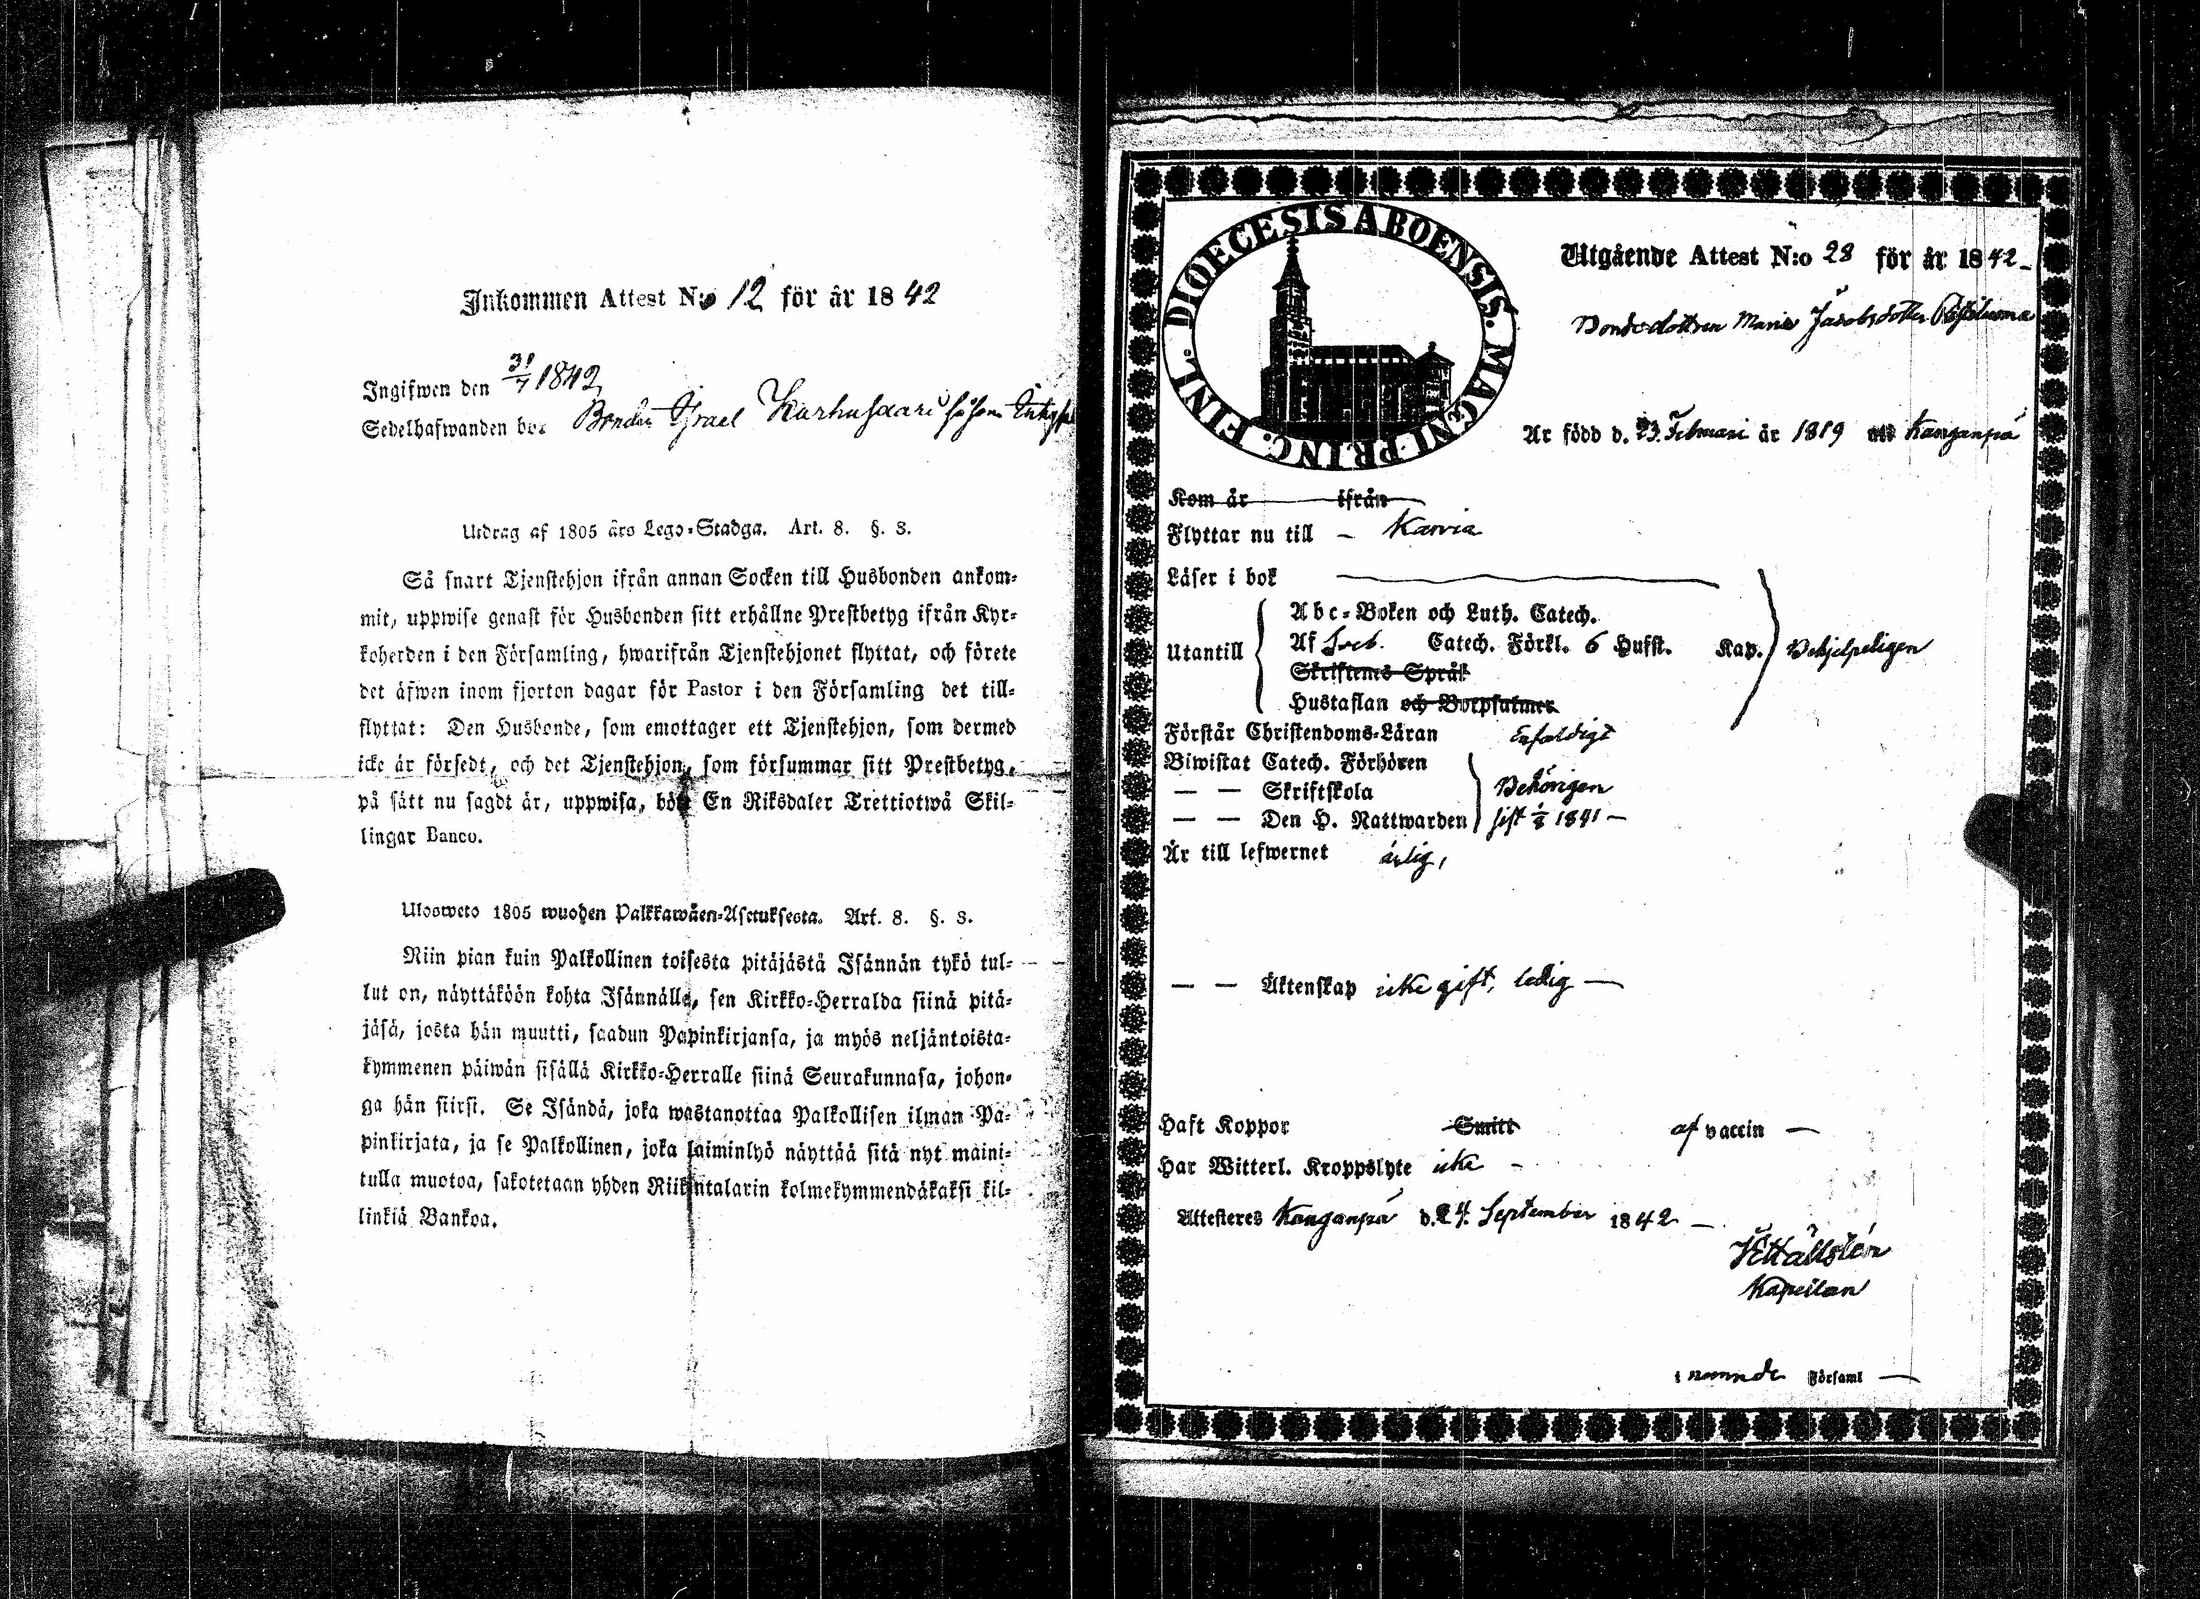 Inkommen Attest N:o 12 för år 1842
Ingifwen den 31/7 1842
Sedelhafwanden hos Bonden Israel Karhusaari såsom
Utdrag af 1805 års Lego-Stadga. Art. 8. §. 3.
Så snart Tjenstehjon ifrån annan Socken till Husbonden ankom-
mit, uppwise genast för Husbonden sitt erhållne Prestbetyg ifrån Kyr-
koherden i den Församling, hwarifrån Tjenstehjonet flyttat, och förete
det äfwen inom fjorton dagar för Pastor i den Församling det till-
flyttat: Den Husbonde, som emottager ett Tjenstehjon, som dermed
icke är försedt, och det Tjenstehjon, som försummar sitt Prestbetyg,
på sätt nu sagdt är, uppwisa, böte En Riksdaler Trettiotwå Skil-
lingar Banco.
Ulosweto 1805 wuoden Palkkawäen-Asetuksesta. Art. 8. §. 3.
Niin pian kuin Palkollinen toisesta pitäjästä Isännän tykö tul-
lut on, näyttäköön kohta Isännälle, sen Kirkko-Herralda siinä pitä-
jäsä, josta hän muutti, saadun Papinkirjansa, ja myös neljäntoista-
kymmenen päiwän sisällä Kirkko-Herralle siinä Seurakunnasa, johon-
ga hän siirsi. Se Isändä, joka wastanottaa Palkollisen ilman Pa-
pinkirjata, ja se Palkollinen, joka laiminlyö näyttää sitä nyt maini-
tulla muotoa, sakotetaan yhden Riikintalarin kolmekymmendäkaksi kil-
linkiä Bankoa.
DIOECESIS ABOENSIS. MAGNI PRINC. FINL.
Utgående Attest N:o 28 för år 1842
Bondedottren Maria Jacobsdotter
Är född d. 23 Februari år 1819 uti Kanganpä
Kom år ifrån
Flyttar nu till Karvia
Läser i bok
Utantill
Abc-Boken och Luth. Catech.
Af Sveb. Catech. Förkl. 6 Hufst. Kap. Behjelpeligen
Skriftens Språk
Hustaflan och Botpsalmer
Förstår Christendoms-Läran Enfaldigt
Biwistat Catech. Förhören
— — Skriftskola Behörigen
— — Den H. Nattwarden sist 1/8 1841
Är till lefwernet ärlig,
— — Äktenskap icke gift, ledig
Haft Koppor Smitt af vaccin
Har Witterl. Kroppslyte icke
Attesteres Kanganpä d. 24. September 1842
Kapellan
i nämnde Församl